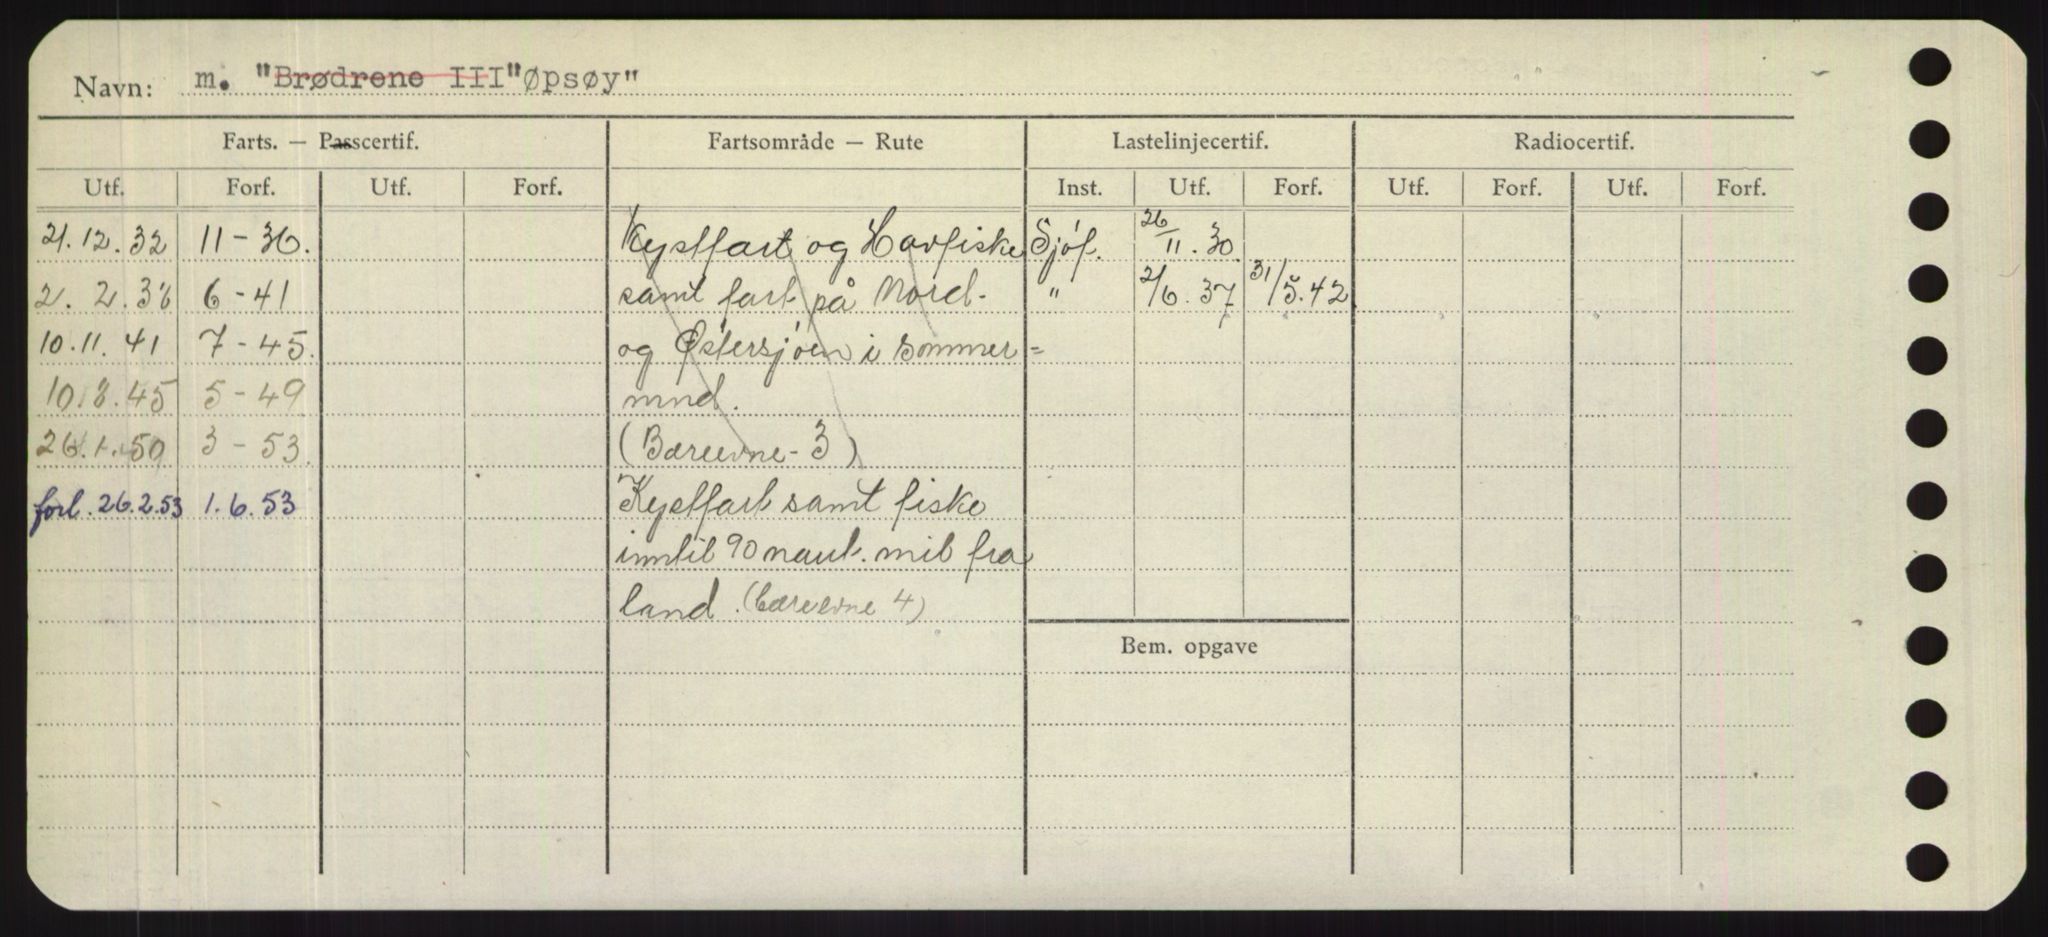 Navn: m. "Brødrene III" "Øpsøy"
Farts. — Passcertif. Fartsområde — Rute Lastelinjecertif. Radiocertif.
Utf. Forf. Utf. Forf. Inst. Utf. Forf. Utf. Forf. Utf. Forf.
21.12.32 11-36. Kystfart og Havfiske Sjöf. 26/11.30.
2.2.38 6-41 samt fart på Nord- " 2/6.37 31/5.42
10.11.41 7-45. og Østersjöen i sommer=
10.8.45 5-49 mnd.
26.1.50 3-53. (Bæreevne-3)
forl. 26.2.53 1.6.53 Kystfart samt fiske
inntil 90 naut. mil fra
land. (bæreevne 4)
Bem. opgave